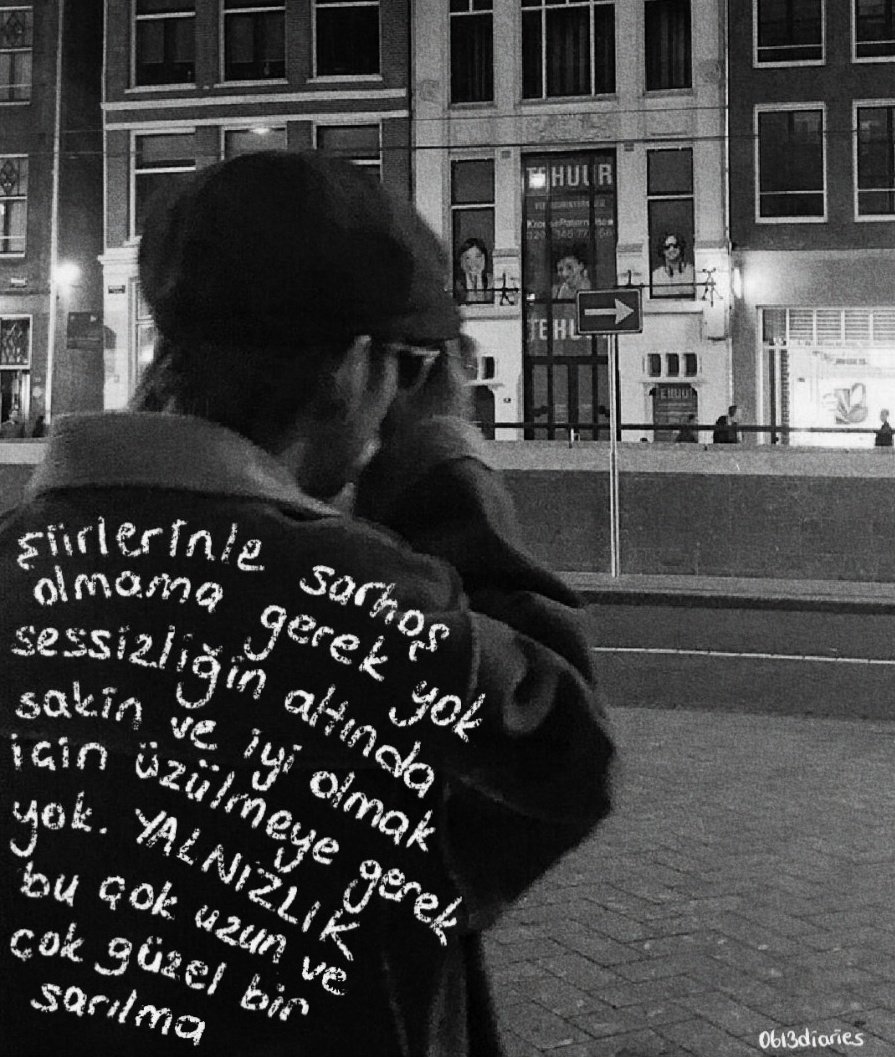 şiirlerinle sarhoş
olmama gerek yok
sessizliğin altında
sakin ve iyi olmak
için üzülmeye gerek
yok. YALNIZLIK
bu çok uzun ve
çok güzel bir
sarılma
TE HUUR
TE HU
0613diaries